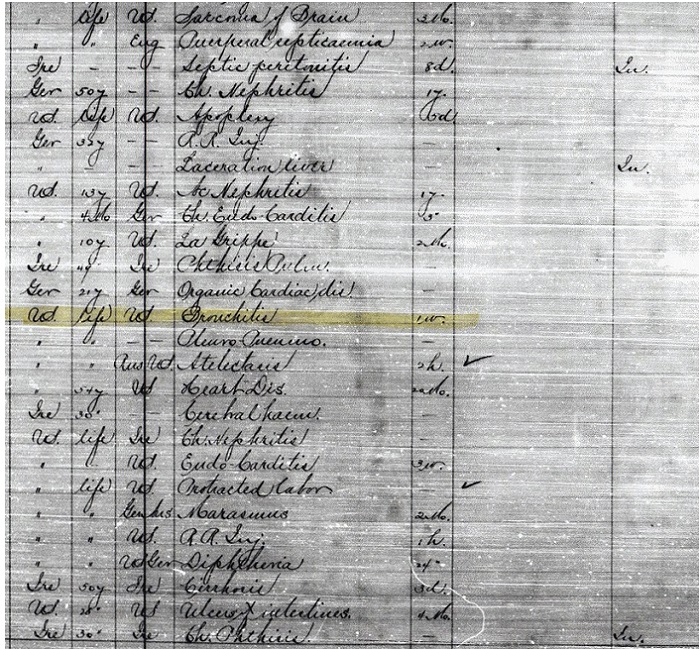 " life Ud. Sarcoma of Brain 3Mo.
" " Eng Puerperal septicaemia 2w.
Ire – – – Septic peritonitis 8d. In.
Ger 50y – – Ch. Nephritis 1y.
Ud. life Ud. Apoplexy 6d.
Ger 35y – – R.R. Inj. –
" – – – Laceration liver – In.
Ud. 13y Ud. Ac. Nephritis 1y.
" 4Mo Ger Ch. Endo-Carditis
" 10y Ud. La Grippe 2Mo.
Ire Ire Phthisis Pulm. –
Ger 21y Ger Organic Cardiac dis. –
Ud. life Ud. Bronchitis 1w.
" " – – Pleuro Pneumo. –
" " Aus Ud. Atelectasis 2h. ✓
" 54y Ud Heart Dis.
Ire 30" – – Cerebral haem. –
Ud. life Ire Ch. Nephritis –
" Ud. Endo-Carditis 3w.
" life Ud. Protracted labor – ✓
" " Marasmus 2Mo.
" " Ud. R.R. Inj. 1h.
" " Ud Ger Diphtheria
Ire 50y Ire Cirrhosis 3d.
Ud. 28" Ud Ulcers of intestines. 4Mo.
Ire 30" Ire Ch. Phthisis – In.